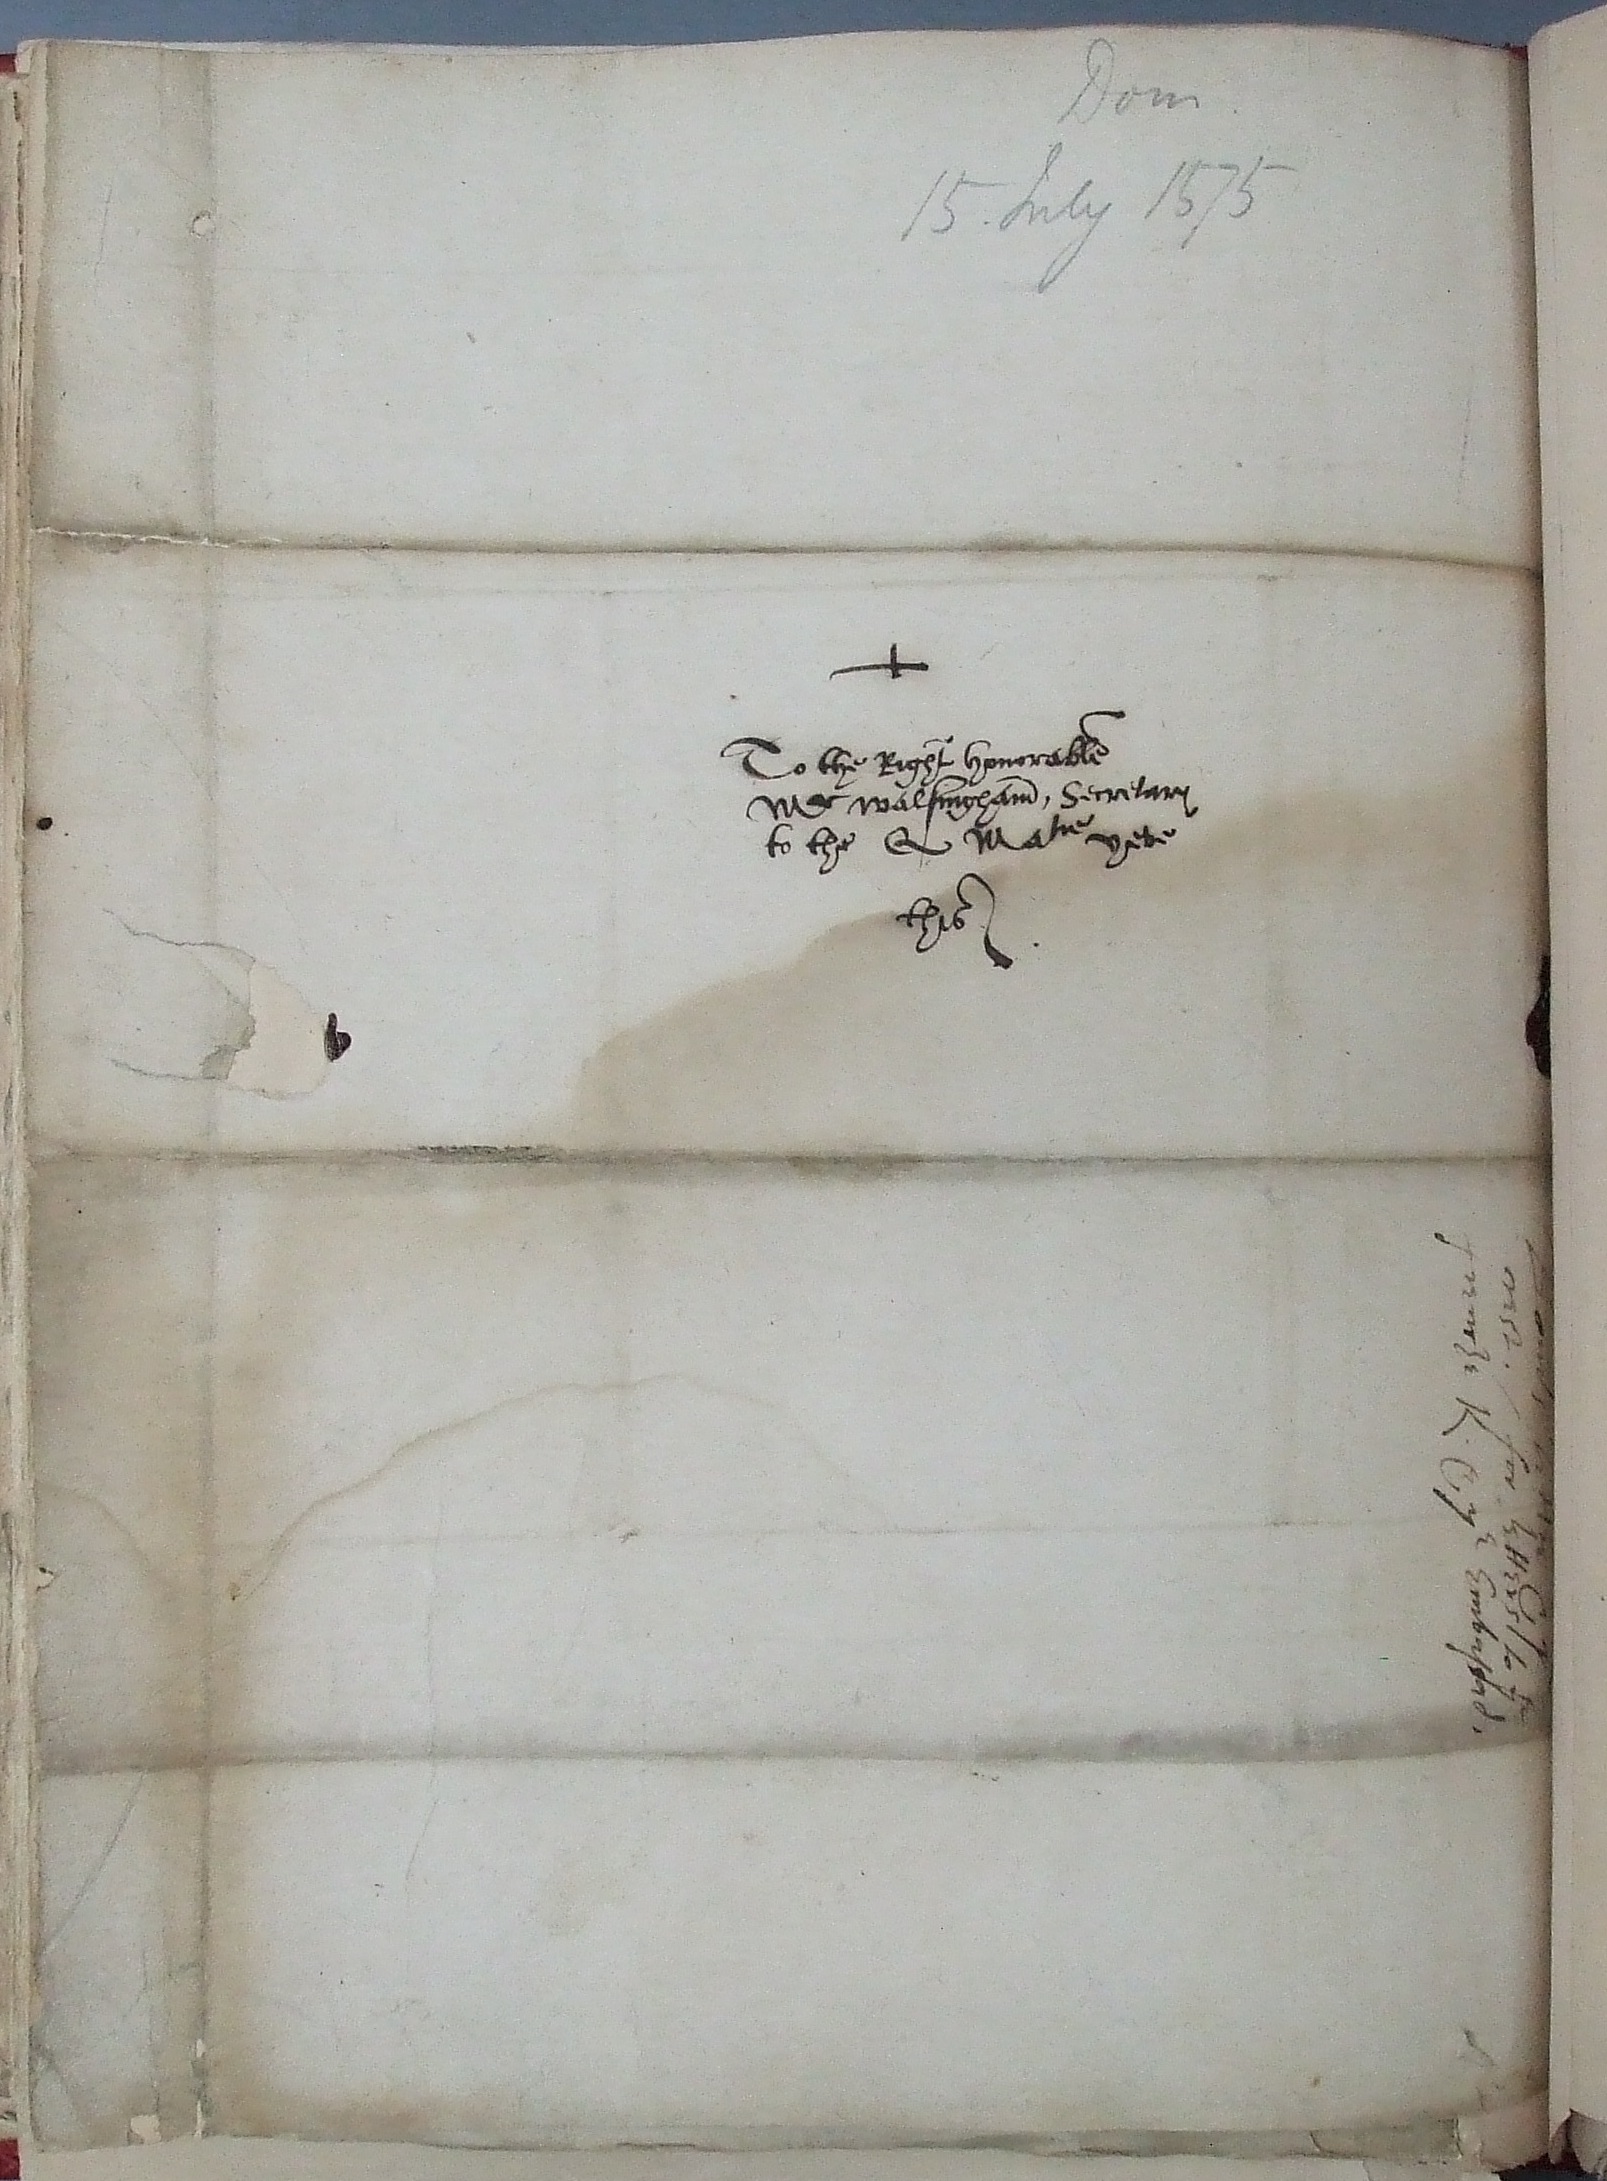 Dom.
15. July 1575
To the Right honorable
Mr Walsingham, Secretary
to the Q Matie yeve
this
french K. By
Embass